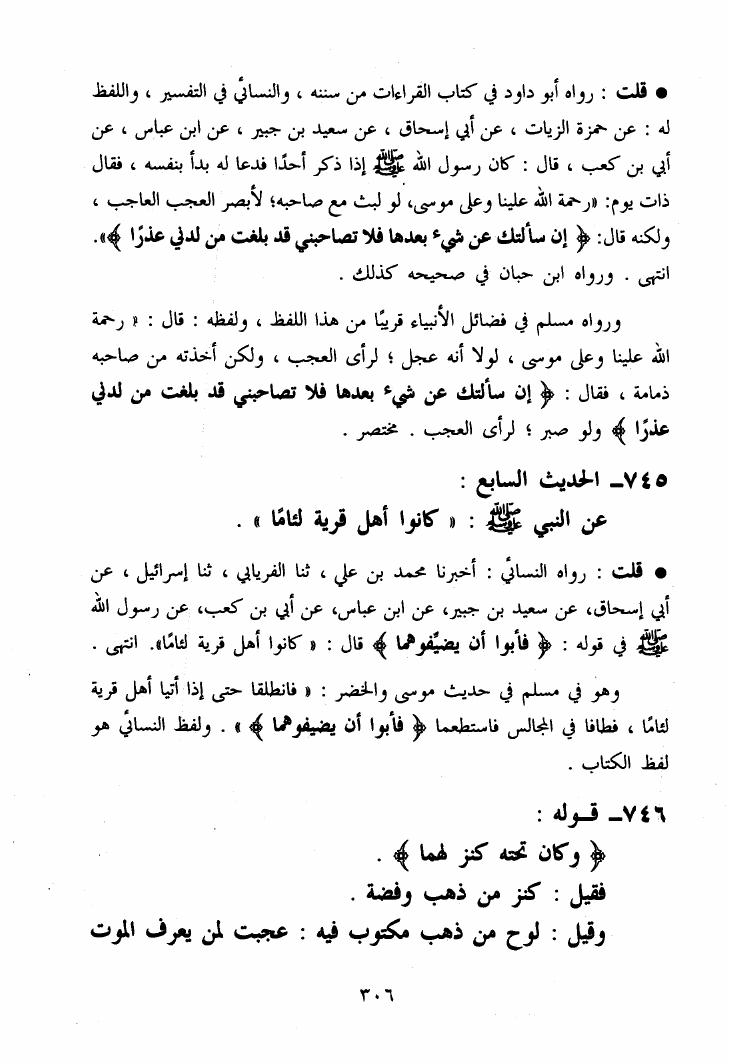 ● قلت : رواه أبو داود في كتاب القراءات من سننه ، والنسائي في التفسير ، واللفظ
له : عن حمزة الزيات ، عن أبي إسحاق ، عن سعيد بن جبير ، عن ابن عباس ، عن
أبي بن كعب ، قال : كان رسول الله ﷺ إذا ذكر أحدًا فدعا له بدأ بنفسه ، فقال
ذات يوم: «رحمة الله علينا وعلى موسى، لو لبث مع صاحبه؛ لأبصر العجب العاجب ،
ولكنه قال: ﴿ إن سألتك عن شيء بعدها فلا تصاحبني قد بلغت من لدني عذرًا ﴾».
انتهى . ورواه ابن حبان في صحيحه كذلك .
ورواه مسلم في فضائل الأنبياء قريبًا من هذا اللفظ ، ولفظه : قال : « رحمة
الله علينا وعلى موسى ، لولا أنه عجل ؛ لرأى العجب ، ولكن أخذته من صاحبه
ذمامة ، فقال : ﴿ إن سألتك عن شيء بعدها فلا تصاحبني قد بلغت من لدني
عذرًا ﴾ ولو صبر ؛ لرأى العجب . مختصر .
٧٤٥ـ الحديث السابع :
عن النبي ﷺ : « كانوا أهل قرية لئامًا » .
● قلت : رواه النسائي : أخبرنا محمد بن علي ، ثنا الفريابي ، ثنا إسرائيل ، عن
أبي إسحاق، عن سعيد بن جبير، عن ابن عباس، عن أبي بن كعب، عن رسول الله
ﷺ في قوله : ﴿ فأبوا أن يضيِّفوهما ﴾ قال : « كانوا أهل قرية لئامًا». انتهى .
وهو في مسلم في حديث موسى والخضر : « فانطلقا حتى إذا أتيا أهل قرية
لئامًا ، فطافا في المجالس فاستطعما ﴿ فأبوا أن يضيفوهما ﴾ » . ولفظ النسائي هو
لفظ الكتاب .
٧٤٦ـ قـوله :
﴿ وكان تحته كنز لهما ﴾ .
فقيل : كنز من ذهب وفضة .
وقيل : لوح من ذهب مكتوب فيه : عجبت لمن يعرف الموت
٣٠٦